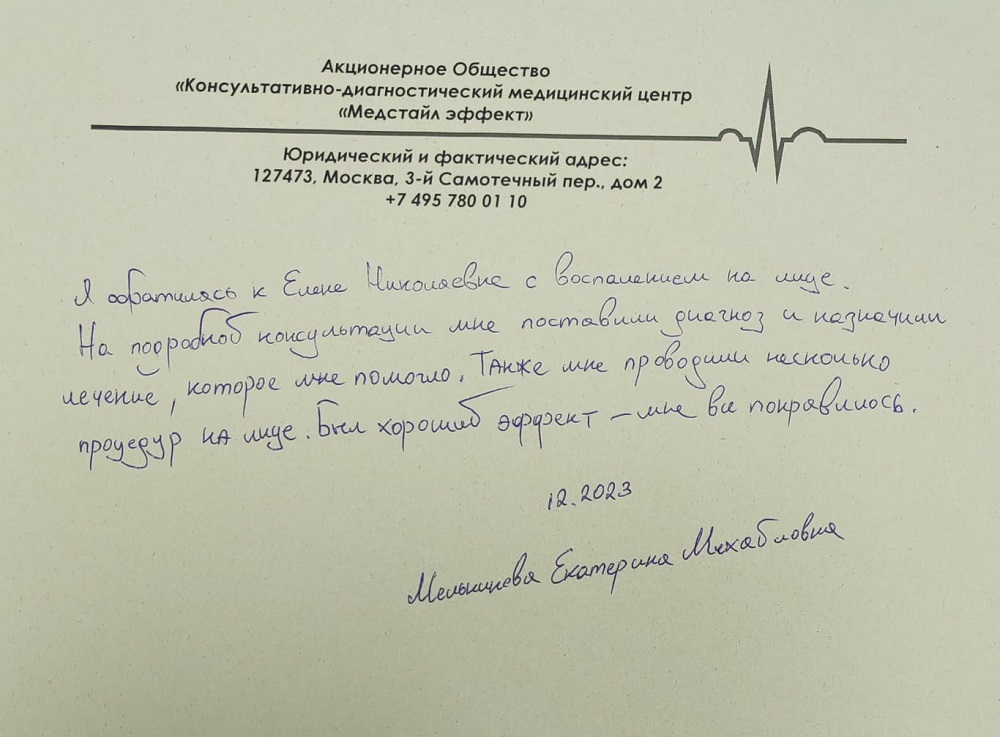 Акционерное Общество
«Консультативно-диагностический медицинский центр
«Медстайл эффект»
Юридический и фактический адрес:
127473, Москва, 3-й Самотечный пер., дом 2
+7 495 780 01 10
Я обратилась к Елене Николаевне с воспалением на лице.
На подробной консультации мне поставили диагноз и назначили
лечение, которое мне помогло. Также мне проводили несколько
процедур на лице. Был хороший эффект – мне все понравилось.
12.2023
Екатерина Михайловна